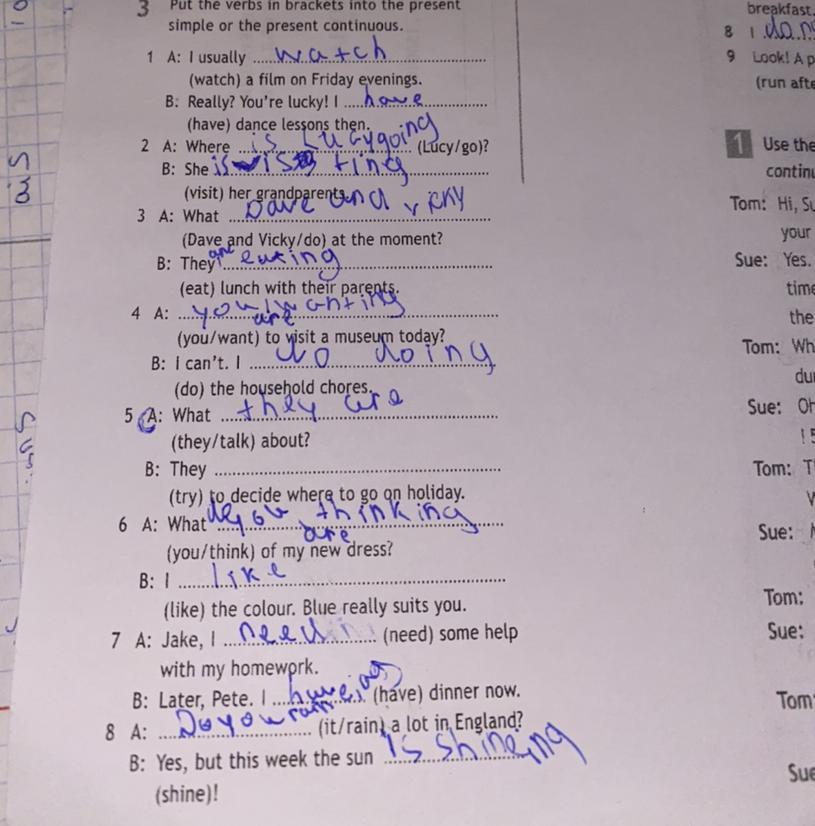 3 Put the verbs in brackets into the present
simple or the present continuous.
1 A: I usually watch
(watch) a film on Friday evenings.
B: Really? You're lucky! I have
(have) dance lessons then.
2 A: Where is Lucy going (Lucy/go)?
B: She is visiting
(visit) her grandparents.
3 A: What Dave and vicky
(Dave and Vicky/do) at the moment?
B: They are eating
(eat) lunch with their parents.
4 A: you wanting
are
(you/want) to visit a museum today?
B: I can't. I do doing
(do) the household chores.
5 A: What they are
(they/talk) about?
B: They
(try) to decide where to go on holiday.
6 A: What you thinking
are
(you/think) of my new dress?
B: I like
(like) the colour. Blue really suits you.
7 A: Jake, I need (need) some help
with my homework.
B: Later, Pete. I haveing (have) dinner now.
8 A: Do you rain (it/rain) a lot in England?
B: Yes, but this week the sun is shineing
(shine)!
breakfast.
8 I
9 Look! A p
(run afte
1 Use the
contin
Tom: Hi, Su
your
Sue: Yes.
time
the
Tom: Wh
du
Sue: Oh
! 5
Tom: T
W
Sue:
Tom:
Sue:
Tom
Sue